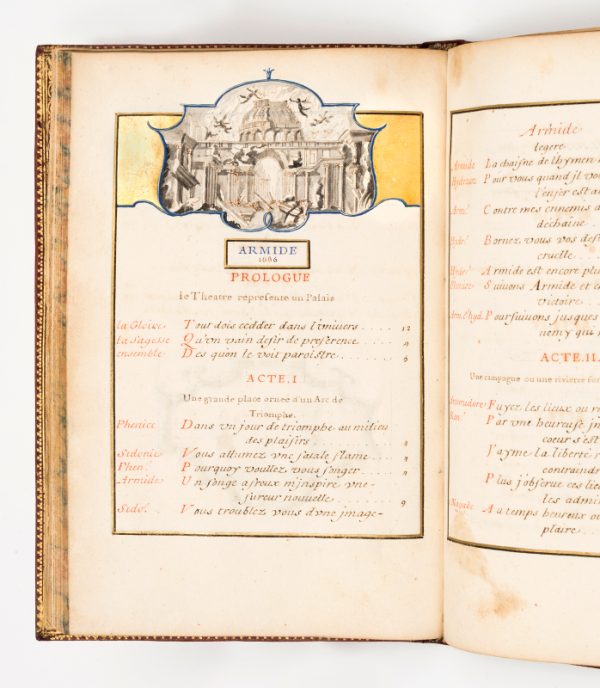 ARMIDE
1686
PROLOGUE
le Theatre represente un Palais
la Gloire Tout dois cedder dans l'univers .... 12
la Sagesse Qu'en vain desir de preference ....
ensemble Des quon le voit paroistre .....
ACTE.I
Une grande place ornée d'un Arc de
Triomphe.
Phenice Dans vn jour de triomphe au milieu
des plaisirs ....
Sidonie Vous allumez vne fatale flame ....
Phen. Pourquoy voullez vous songer ....
Armide Un songe afreux m'inspire vne
fureur nouvelle ....... 9
Sido. Vous troublez vous d'vne jmage
Armide
legere
Armide La chaisne de lhymen
Hydraot Pour vous quand jl vou
l'enfer est a
Arm. Contre mes ennemis a
déchaine
Hydr. Bornez vous vos desir
cruelle ...
Armide est encore plu
Suivons Armide et c
victoire ...
Arm. l'hyd. Poursuivons jusques
nemy qui
ACTE.II.
Une campagne ou une riviere for
Fuyez les lieux ou r
Ren. Par vne heureuse jn
coeur s'est
J'ayme la liberté r
contraindr
Plus j'observe ces lieu
les admir
Au temps heureux ou
plaire ...